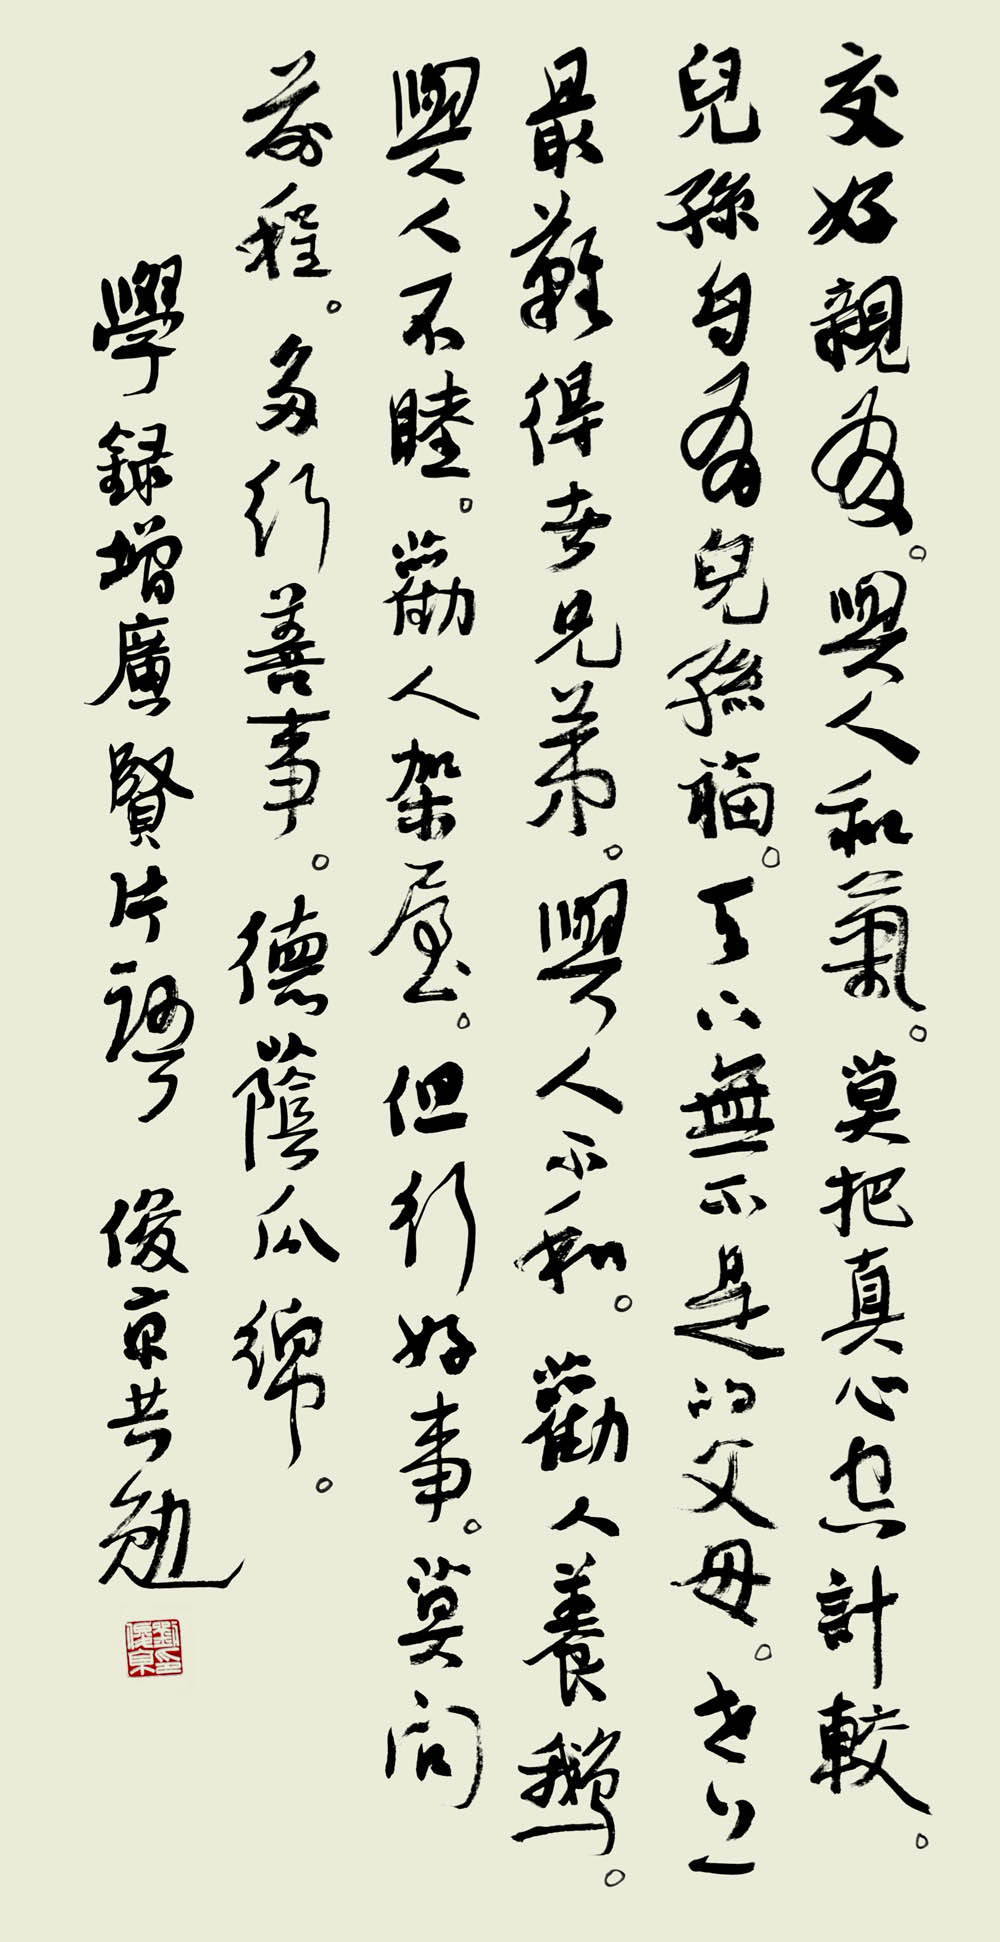 交好親友。與人和氣。莫把真心空計較。
兒孫自有兒孫福。天下無不是的父母。世上
最難得者兄弟。與人不和。勸人養鵝。
與人不睦。勸人架屋。但行好事。莫問
前程。多行善事。德蔭瓜綿。
學錄增廣賢片語 俊京共勉